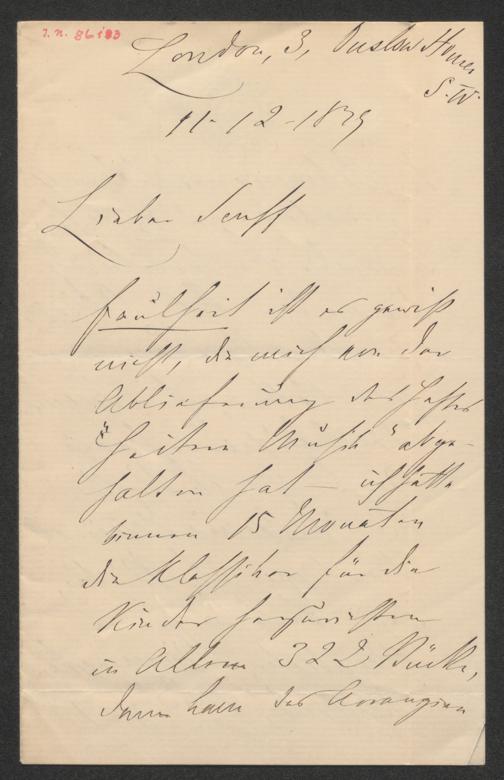 I. N. 86183
London, 3, Onslow Houses
S. W.
11 - 12 - 1879
Lieber Senff
Faulheit ist es gewiß
nicht, die mich von der
Ablieferung des Heftes
"Heitere Musik" abge-
halten hat – ich hatte
binnen 15 Monaten
die Klassiker für die
Kinder herzurichten
in Allem 322 Stücke,
dann kam das Arrangiren